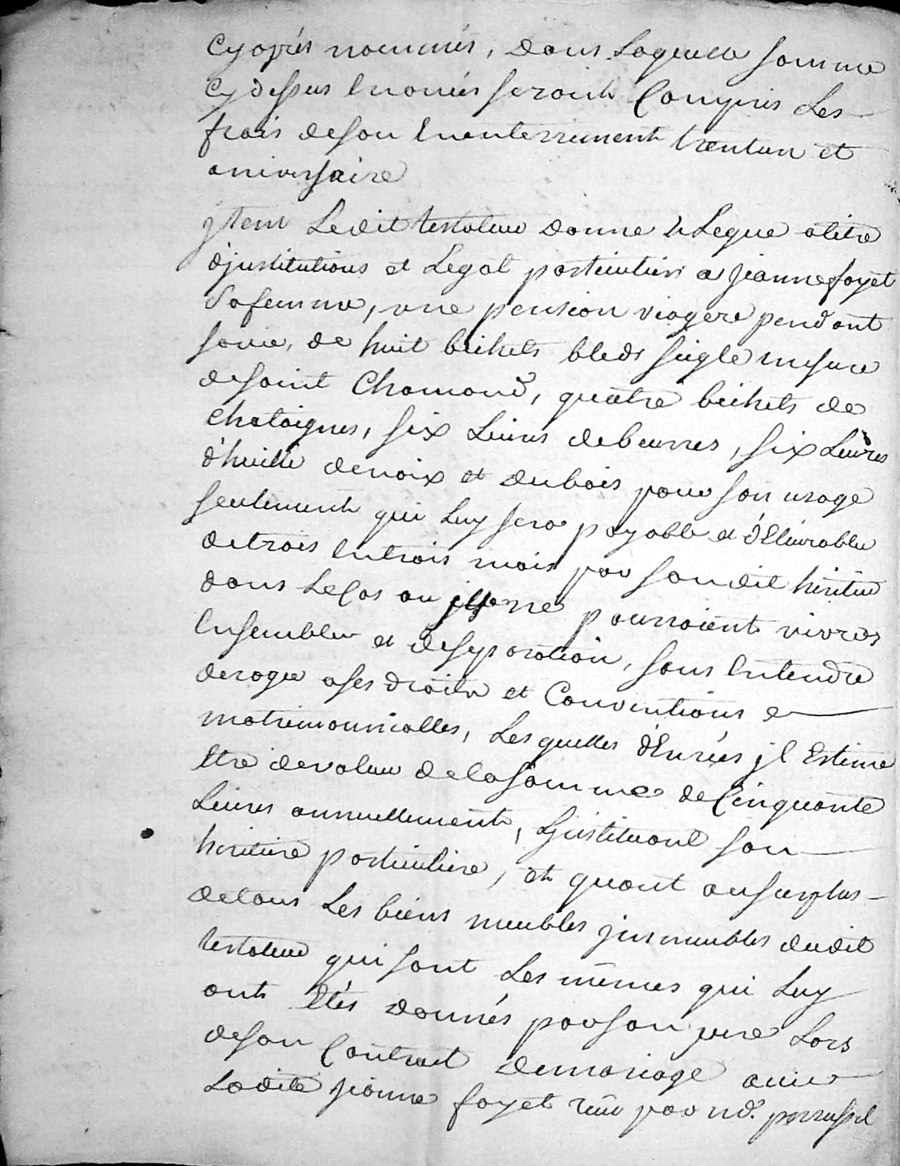 Cy après nommés, dans Laquelle somme
Cy dessus Enoncés seront Compris Les
frais deson Enenterrement trentun et
aniversaire
jtem Ledit testateur donne & Legue atitre
djnstitutions et Legat particulier a jeanne fayet
Safemme, une pension viagere pendant
savie, de huit bichets bleds seigle mesure
desaint Chamond, quatre bichets de
Chataignes, six Livres debeurres, six Livres
d'huille denoix et dubois pour son usage
seulement qui Luy sera payable et d'Elivrable
detrois Entrois mois par sondit heritier
dans Lecas ou pourroient vivres
Ensembles et deseparation, sans Entendre
deroger ases droits et Conventions
matrimonialles, Lesquelles d'Enrées jl Estime
Etre devaleur delasomme de Cinquante
Livres annuellement, Linstituant son
heritiere particuliere, et quant ausurplus
detous Les biens meubles jmmeubles dudit
testateur qui sont Les mêmes qui Luy
ont Etés donnés parson pere Lors
deson Contract demariage avec
Ladite jeanne fayet reçu par